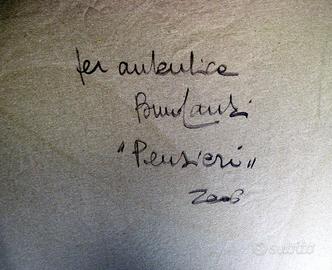 per autentica
Bruno Landi
"Pensieri"
2006
subito